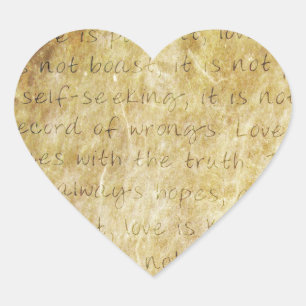 is p
not boast it is not
self-seeking, it is not
ecord of wrongs. Love
es with the truth.
always hopes,
t, love is k
not